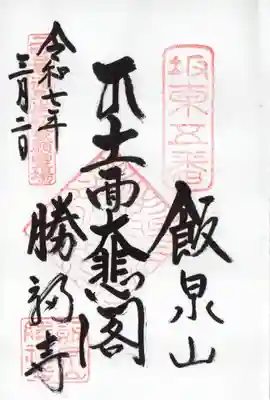 坂東五番
飯泉山
十一面大悲閣
勝福寺
令和七年
三月二日